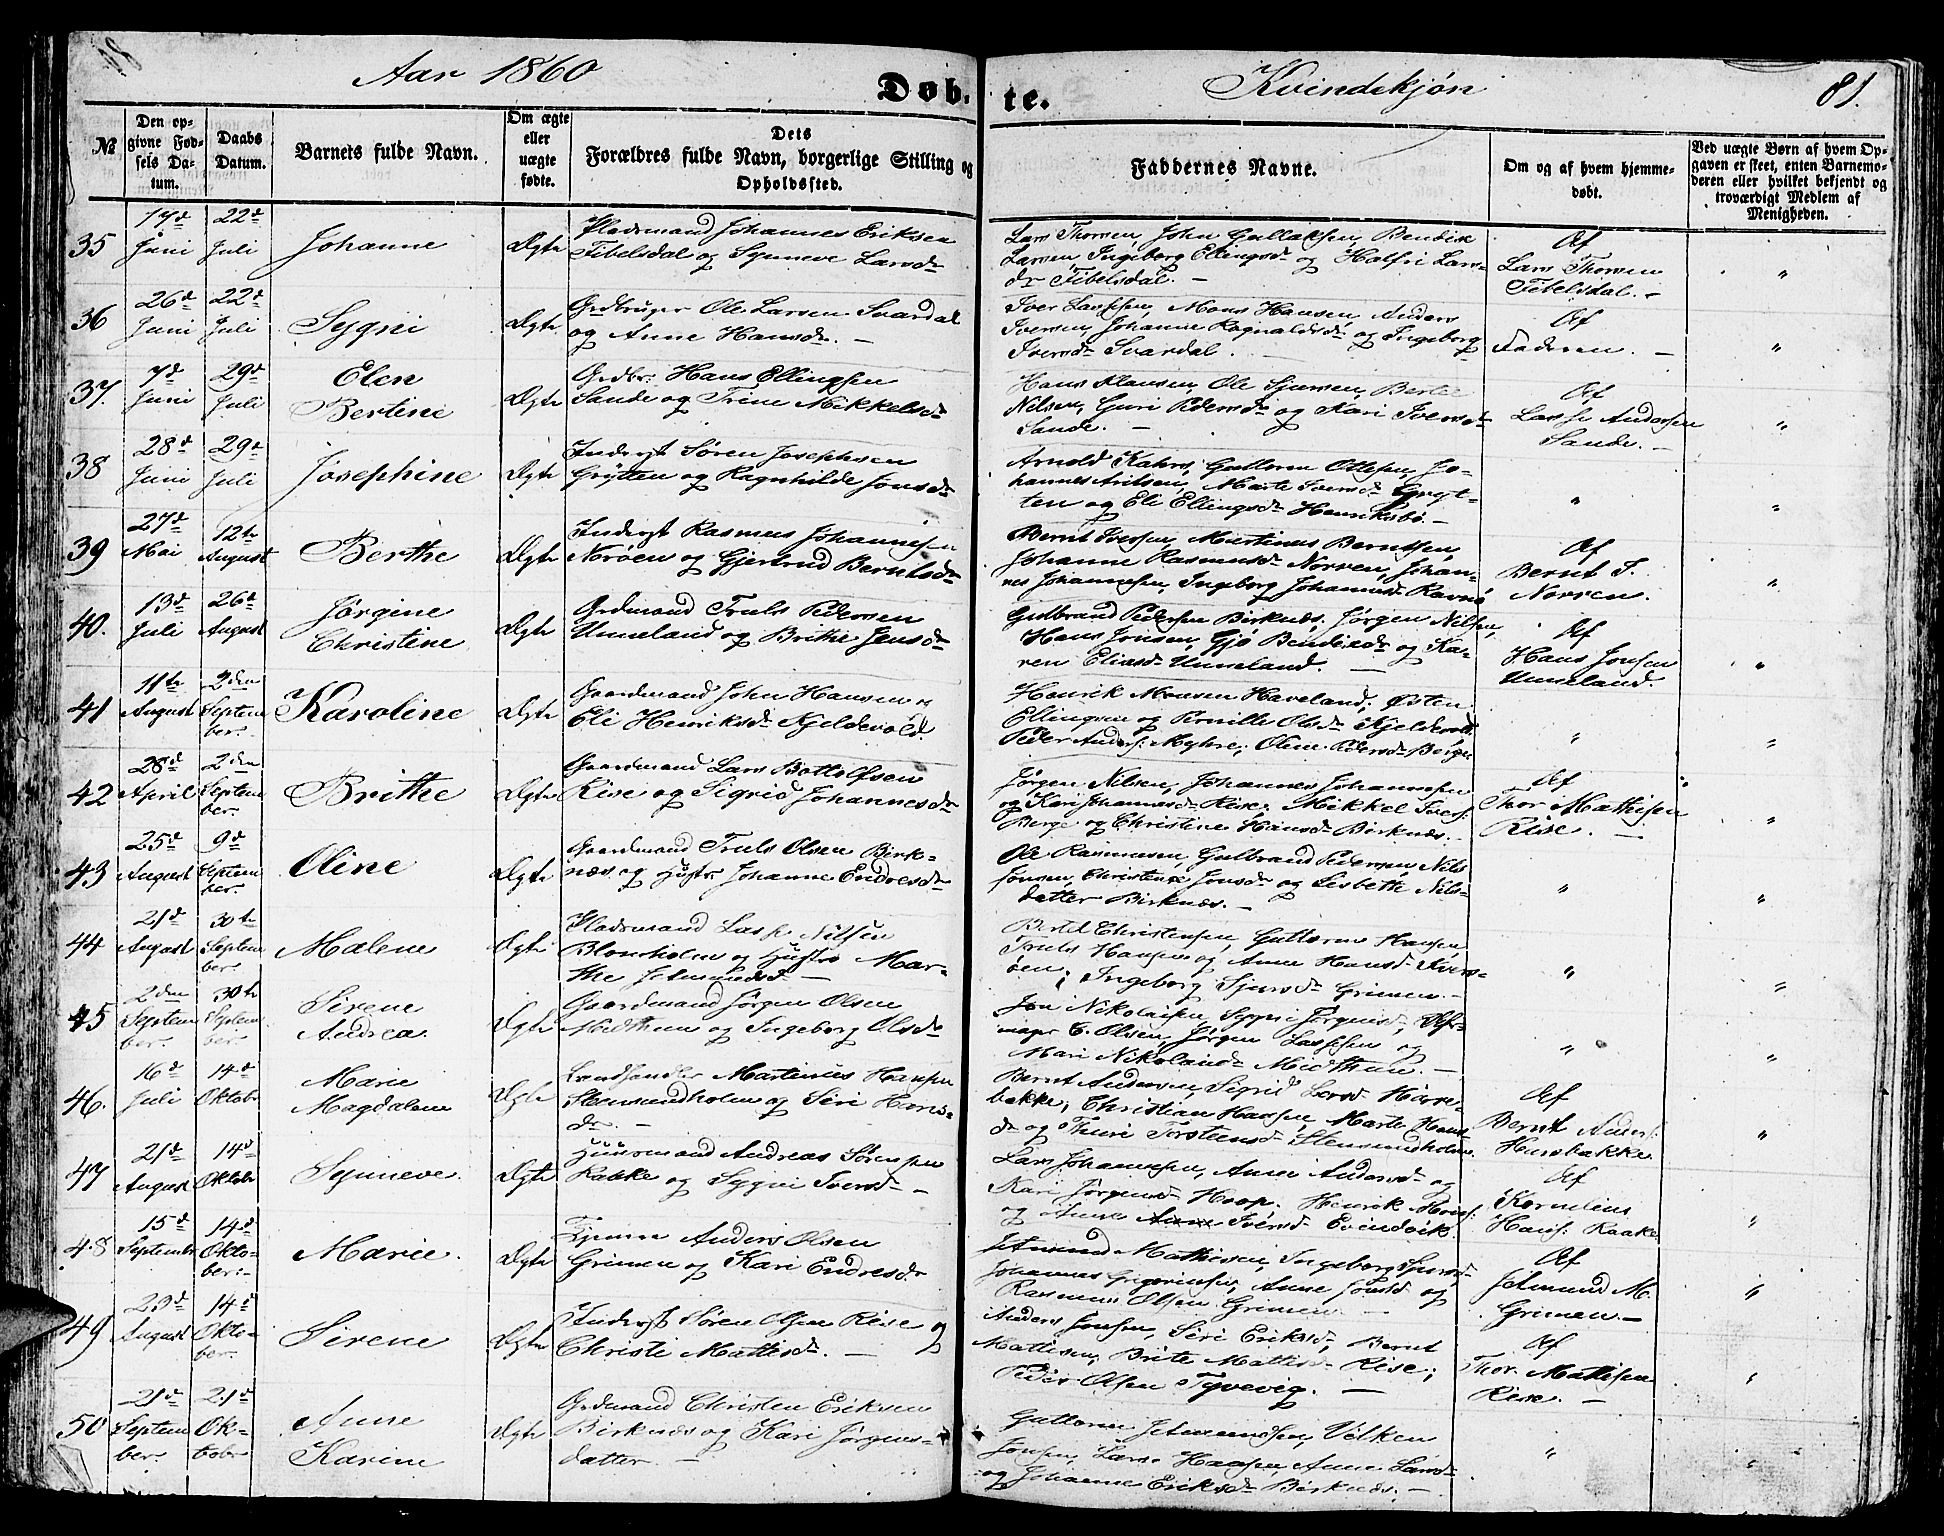 Aar 1860
Døb-
te.
Kvindekjøn
81.
№
Den op-
givne Fød-
sels Da-
tum.
Daabs
Datum.
Barnets fulde Navn.
Om ægte
eller
uægte
fødte.
Dets
Forældres fulde Navn, borgerlige Stilling og
Opholdssted.
Faddernes Navne.
Om og af hvem hjemme-
døbt.
Ved uægte Børn af hvem Op-
gaven er skeet, enten Barnemo-
deren eller hvilket bekjendt og
troværdigt Medlem af
Menigheden.
35
17d
Juni
22d
Juli
Johanne
Ægte
Pladsmand Johannes Eriksen
Tibelsdal og Synneve Larsdr
Lars Thorsen, John Gullaksen, Bendik
Larsen, Ingeborg Ellingsdr og Halfri Lars-
dr Tibelsdal. -
Af
Lars Thorsen
Tibelsdal. -
36
26d
Juni
22d
Juli
Sygni
Ægte
Grdbruger Ole Larsen Svardal
og Anne Hansdr. -
Iver Lassesen, Mons Hansen, Anders
Iversen, Johanne Ragnaldsdr og Ingeborg
Iversdr Svardal. -
Af
Faderen. -
37.
7d
Juni
29d
Juli
Elen
Bertine
Ægte
Grdbr: Hans Ellingsen
Sande og Trine Mikkelsdr
Hans Klausen, Ole Sjursen, Bertel
Nilsen, Guri Pedersdr og Kari Iversdr
Sande. -
Af
Lasse Andersen
Sande. -
38
28d
Juni
29d
Juli
Josephine
Ægte
Inderst Søren Josephsen
Grytten og Ragnhilde Jonsdr
Arnold Kahrs, Guttorm Ottesen, Jo-
hannes Nilsen, Marte Iversdr Gryt-
ten og Eli Ellingsdr Henriksbø. -
39
27d
Mai
12te
August
Berthe
Ægte
Inderst Rasmus Johannesen
Norøen og Gjertrud Berntsdr
Bernt Iversen, Martinus Berntsen,
Johanne Rasmusdr Norøen, Johan-
nes Johannesen, Ingeborg Johannesdr Ravnø
Af
Bernt I.
Norøen.
40.
13d
Juli
26d
August
Jørgine
Christine
Ægte
Grdmand Truls Pedersen
Unneland og Brithe Jensdr
Gulbrand Pedersen Birknæs. Jørgen Nilsen,
Hans Jonsen, Gjø Bendixdr og Ka-
ren Eliasdr Unneland. -
Af
Hans Jonsen
Unneland.
41
11te
August
2den
Septem
ber.
Karoline
Ægte
Gaardmand John Hansen og
Eli Henriksdr Kjeldevold.
Henrik Monsen Haveland; Østen
Ellingsen og Pernille Olsdr Kjeldevold
Peder Anders: Myhre; Oline Pedersdr Berge
42
28d
April
2den
Septem
ber.
Brithe
Ægte
Gaardmand Lars Bottolfsen
Rise og Sigrid Johannesdr
Jørgen Nilsen, Johannes Johannesen
og Kari Johannesdr Rise. Mikkel Ivers:
Berge og Christine Hansdr Birknæs. -
Af
Thor Mathisen
Rise. -
43
25d
August
9d
Septem
ber.
Oline
Ægte
Gaardmand Truls Olsen Birk-
næs og Hustr. Johanne Endresdr
Ole Rasmusen, Gulbrand Pedersen, Nils
Jonsen, Christense Jonsdr og Lisbeth Nils-
datter Birknæs. -
44
21d
August
30te
Septem
ber.
Malene
Ægte
Pladsmand Lasse Nilsen
Blomholm og Hustro Mar-
the Jetmundsdr -
Bertel Christensen, Guttorm Hansen
Truls Hansen og Anne Hansdr Kvers-
øen; Ingeborg Sjursdr Grimen. -
45
2den
Septem
ber.
30te
Septem
ber.
Sirene
Andrea.
Ægte
Gaardmand Jørgen Olsen
Midthun og Ingeborg Olsdr
Jon Nikolaisen, Sygni Jørgensdr,
Olsen, Jørgen Lassesen og
Mari Nikolaisdr Midthun. -
46.
16d
Juli
14d
Oktobr
Marie
Magdalene
Ægte
Landhandler Martinus Hansen
Steensundholm og Siri Hans-
dr. -
Bernt Andersen, Sigrid Larsdr Hovse-
bakke; Christian Hansen, Marte Hans
dr og Thuri Torsteensdr Steensundholm.
Af
Bernt Anders:
Husebakke.
47
21d
August
14d
Oktobr
Synneve.
Ægte
Huusmand Andreas Sørensen
Raake og Sygni Iversdr -
Lars Johannesen, Anne Andersdr og
Kari Jørgensdr Hoop; Henrik Mons:
og Anne Iversdr Evindvik.
Af
Kornelius
Hans: Raake
48
15d
Septembr
14d
Okto-
ber. -
Marie.
Ægte
Tjener Anders Olsen
Grimen og Kari Endresdr
Jetmund Mathisen, Ingeborg Sjursdr
Johannes Grigoriusen, Anne Jonsdr og
Rasmus Olsen Grimen. -
Af
Jetmund M.
Grimen. -
49
23d
August
14d
Okto-
ber.
Sirene
Ægte
Inderst Søren Olsen Rise og
Christi Mattisdr. -
Anders Jonsen, Siri Eriksdr, Bernt
Mattisen; Brite Mattisdr Rise;
Peder Olsen Tyvevig. -
Af
Thor Mattisen
Rise. -
50
21d
Septem
ber.
21d
Ok-
tobr
Anne
Karine
Ægte
Grdmand Christen Eriksen
Birknæs og Kari Jørgens-
datter. -
Guttorm Jetmundsen, Velken
Jonsen, Lars Hansen, Anne Larsdr
og Johanne Eriksdr Birknæs. -